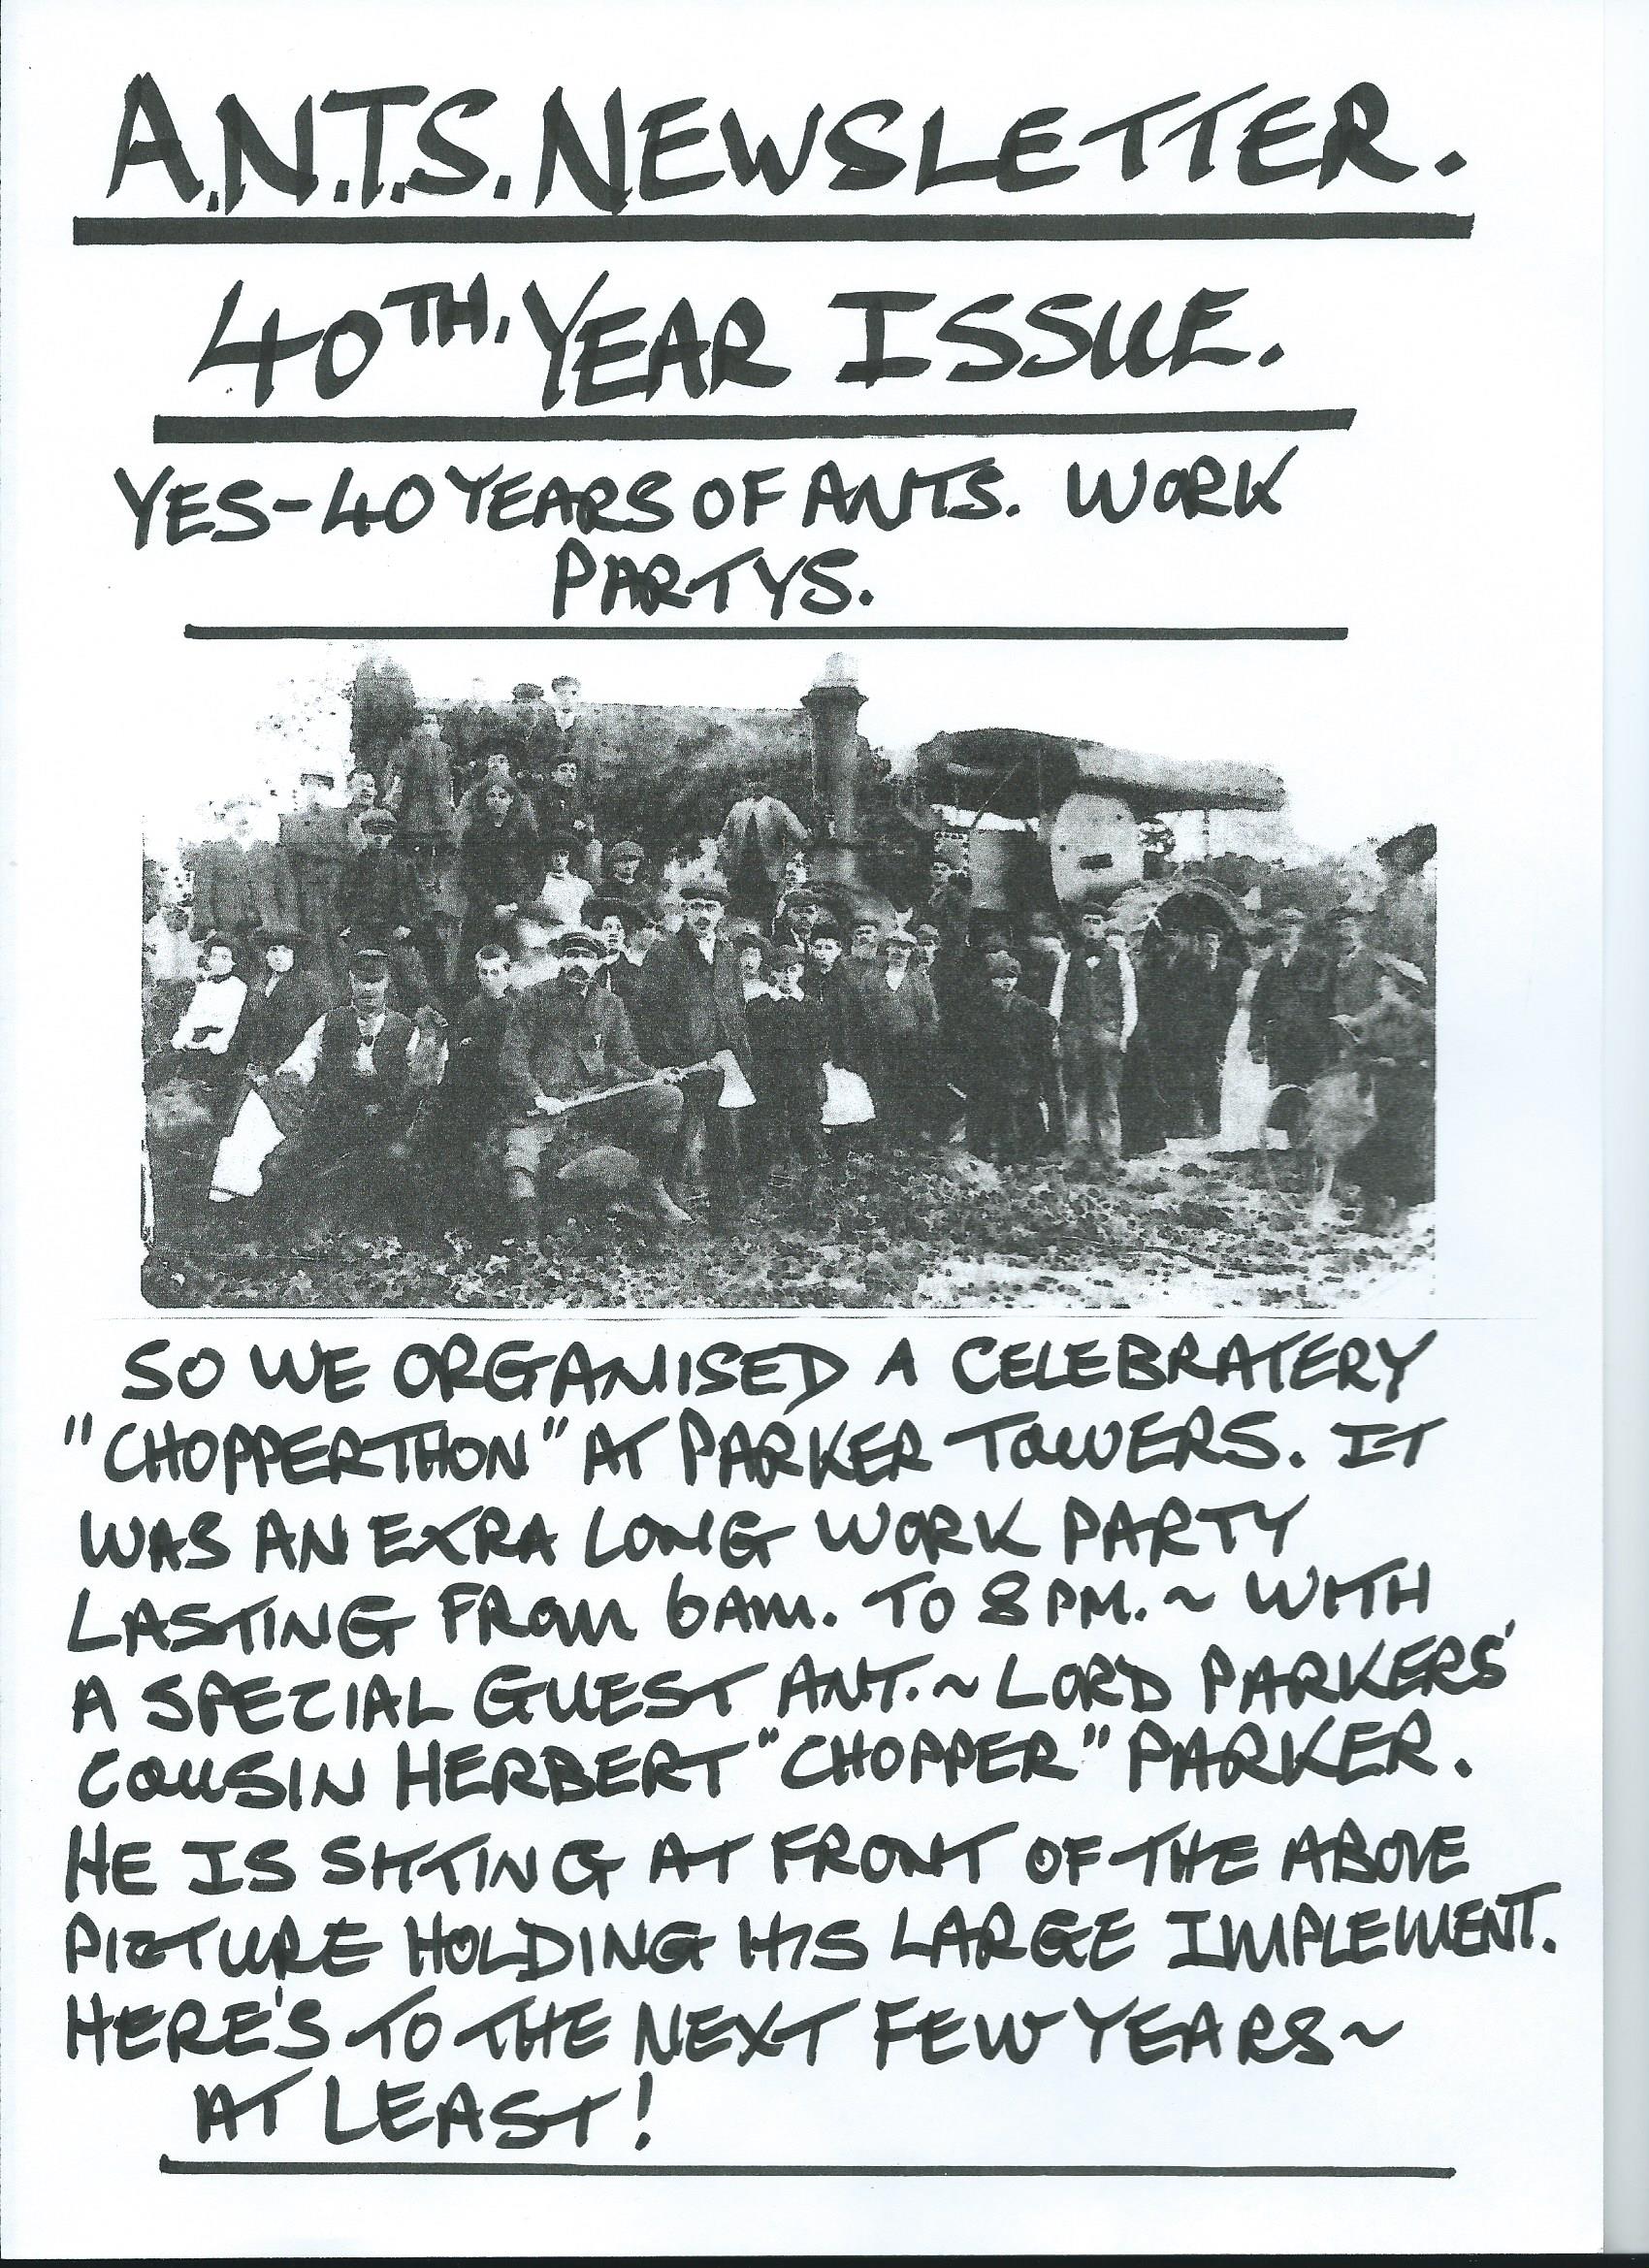 A.N.T.S. NEWSLETTER.
40TH. YEAR ISSUE.
YES-40 YEARS OF ANTS. WORK
PARTYS.
SO WE ORGANISED A CELEBRATERY
"CHOPPERTHON" AT PARKER TOWERS. IT
WAS AN EXRA LONG WORK PARTY
LASTING FROM 6AM. TO 8PM. ~ WITH
A SPECIAL GUEST ANT. ~ LORD PARKERS'
COUSIN HERBERT "CHOPPER" PARKER.
HE IS SITTING AT FRONT OF THE ABOVE
PICTURE HOLDING HIS LARGE IMPLEMENT.
HERE'S TO THE NEXT FEW YEARS ~
AT LEAST!